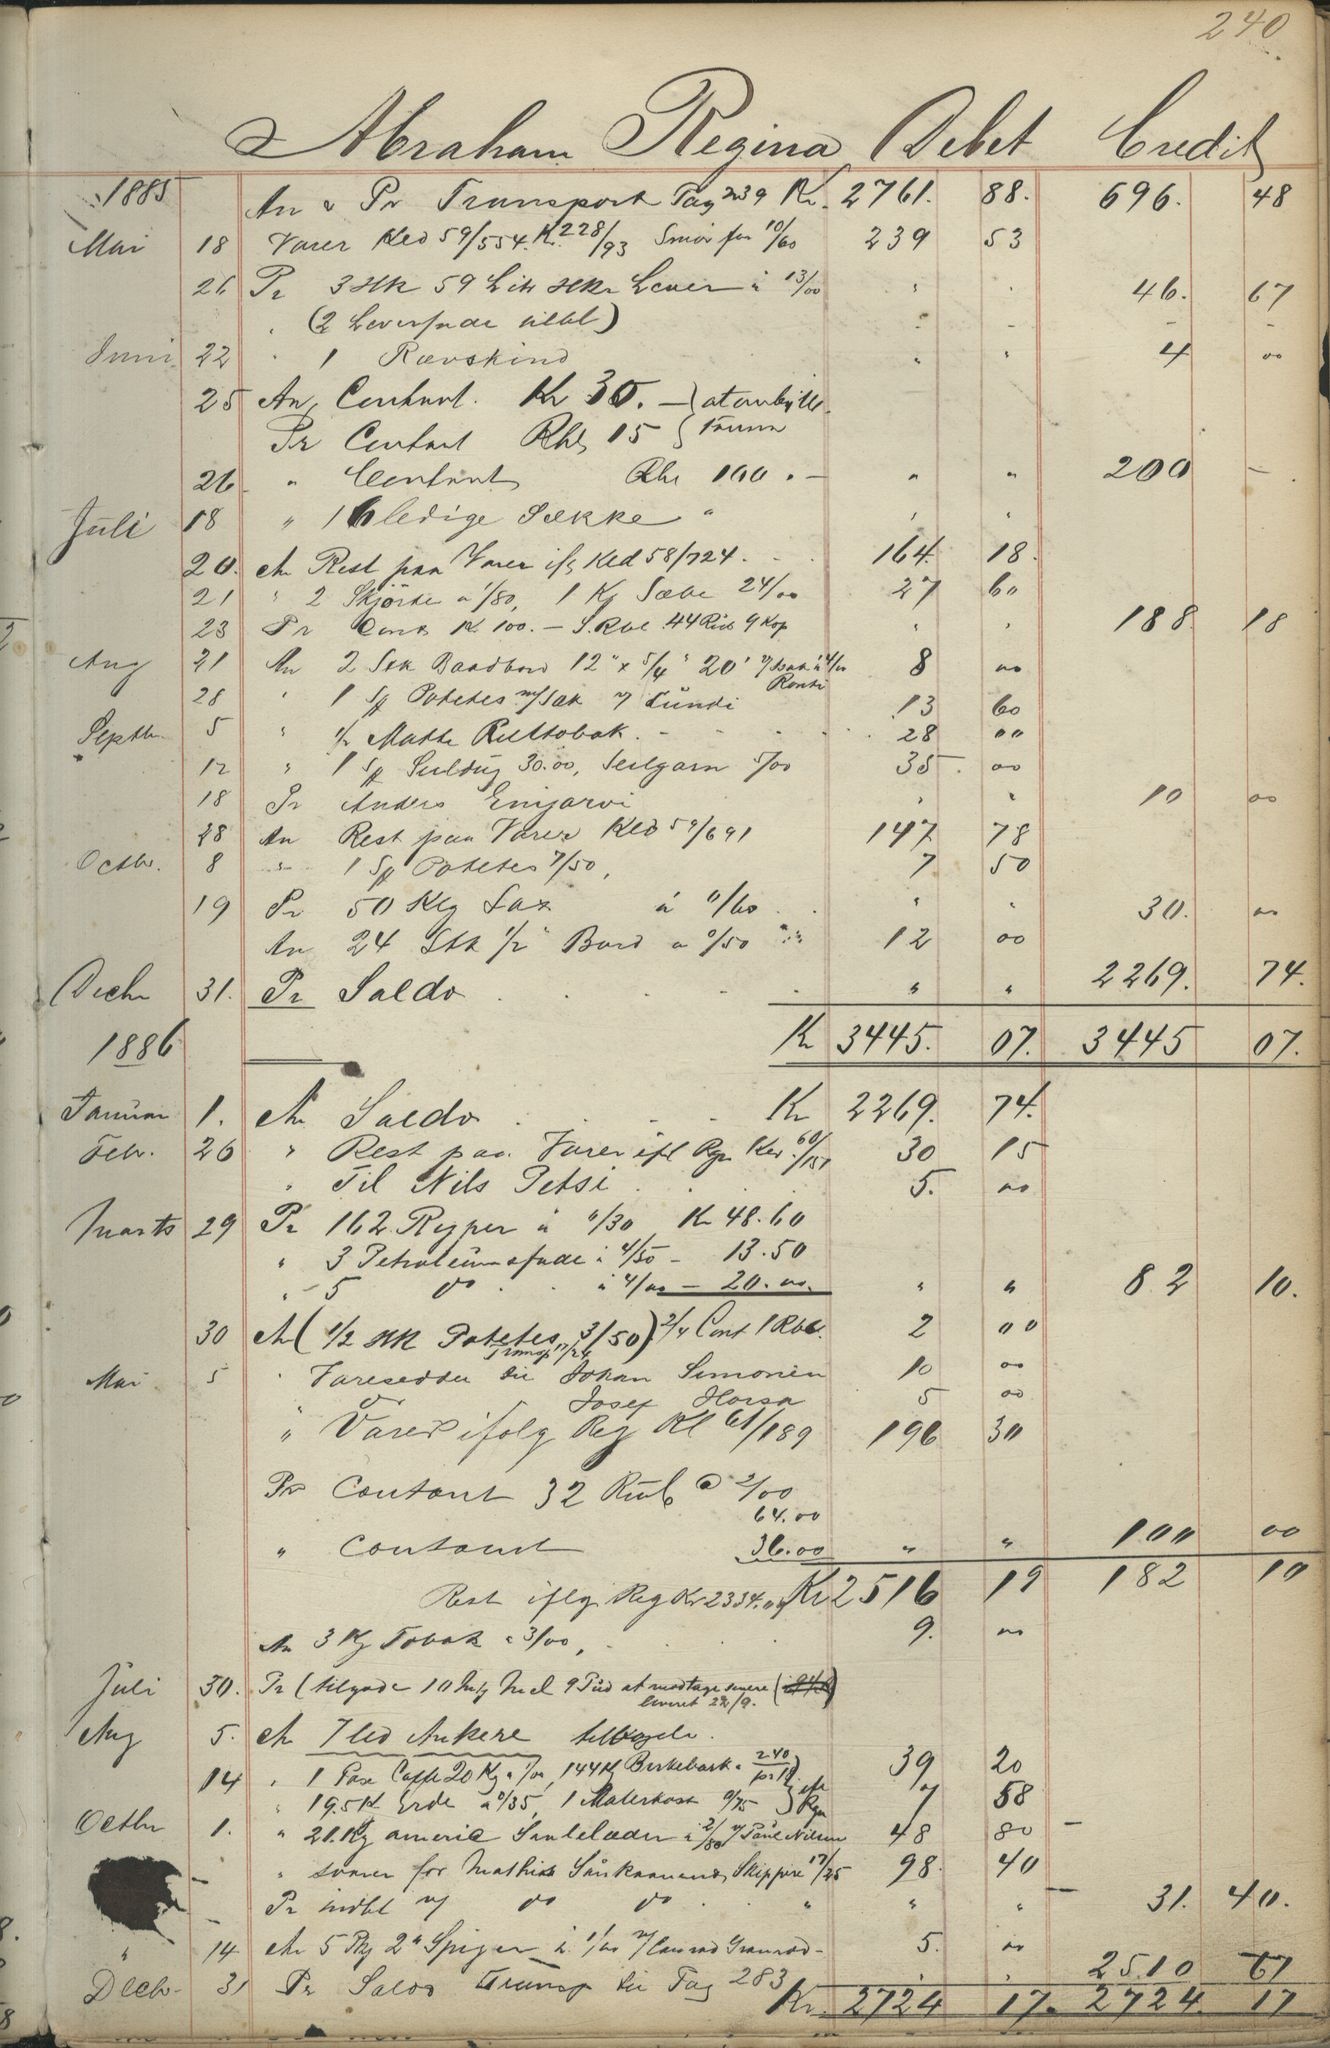 240
Abraham Regina Debet Credit
1885 An & Pr Transport Pag 239 Kr. 2761. 88. 696. 48
Mai 18 Varer Kled 59/554. Kr. 228/93 Smör for 10/60 239 53
26 Pr 3 Hk 59 Litr Lever à 13/00 " . 46. 67
. (2 Leverfade tilbl) - - - -
Juni 22 " 1 Rævskind " " 4 00
25 An Contant. Kr 30. —
Pr Contant Rbl 15
26 " Contant Rbl 100. — " " 200 —
Juli 18 " 16 ledige Sække " " "
20. An Rest paa Varer ifl Kled 58/724. 164. 18.
21 " 2 Skjörte a 1/80, 1 Kg Sæbe 24/00 27 60
23 Pr Cont Kr 100. — S. Rbl. 44 Rub 9 Kop " " 188. 18
Aug 21 An 2 Stk Baadbord 12" x 5/4" 20' 8 00
28 " 1 Sp Potetes m/Sæk v/ Lündi 13 60
Septbr. 5 " 1/2 Matte Rultobak. - - - - 28 00
12 " 1 Sp Seildüg 30.00, Seilgarn 5/00 35. 00
18 Pr Anders Emjarvi " " 10 00
28 An Rest paa Varer Kled 59/691 147. 78
Octbr. 8 " 1 Sp Potetes 7/50, 7 50
19 Pr 50 Klg Lax à 0/60 . . " . 30. 00
An 24 Stk 1/2" Bord a 0/50 12 00
Decbr 31. Pr Saldo . . . . . " " 2269. 74.
1886 Kr 3445. 07. 3445 07.
Januar 1. An Saldo . . . . Kr 2269. 74.
Febr. 26 " Rest paa Varer ifl Rgn Kled 60/151 30 15
" Til Nils Petsi . . . . 5. 00
Marts 29 Pr 162 Ryper à 0/30 Kr 48.60
" 3 Petroleumsfade à 4/50 - 13.50
" 5 do . à 4/00 - 20.00. " " 82 10.
30 An (1/2 HK Potetes 3/50) 2/4 Cont 1 Rbl. 2 00
Transp 17/24
Mai 5 . Varesedder til Johan Simonen 10 00
" do Josef Horsa 5 00
" Varer ifölg Reg Kl 61/189 196 30
Pr Contant 32 Rub @ 2/00
64.00
" Contant 36.00 " " 100 00
Rest iflg Reg Kr 2334.09 Kr 2516 19 182 10
An 3 Kg Tobak a 3/00, . . . . . 9. 00
Juli 30. Pr (tilgode 10 Mel 9 Püd at modtage senere
leveret 22/9.
Aug 5. An 7 led Ankere
14 " 1 Caffe 20 Kg a 1/00, 144 Kg Birkebark a 240 39 20
" 19.5 K Erde a 0/35, 1 Malerkost 0/75 7 58
Octbr 1. " 21. Kg americ Saalelæder a 2/80 v/ Paul Nilsen 48 80 —
" svarer for Mathis Skippere 17/25 98. 40
Pr indbt v/ do do . " " " — 31. 40.
" 14 An 5 Pkg 2" Spiger à 1/00 v/ Conrad 5. 00
Decbr. 31 Pr Saldo Transp til Pag 283 . . 2510 67
Kr. 2724 17. 2724. 17